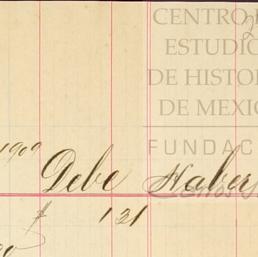 CENTRO
ESTUDIO
DE HISTOR
DE MEXIC
FUNDAC
1909 Debe Haber
121